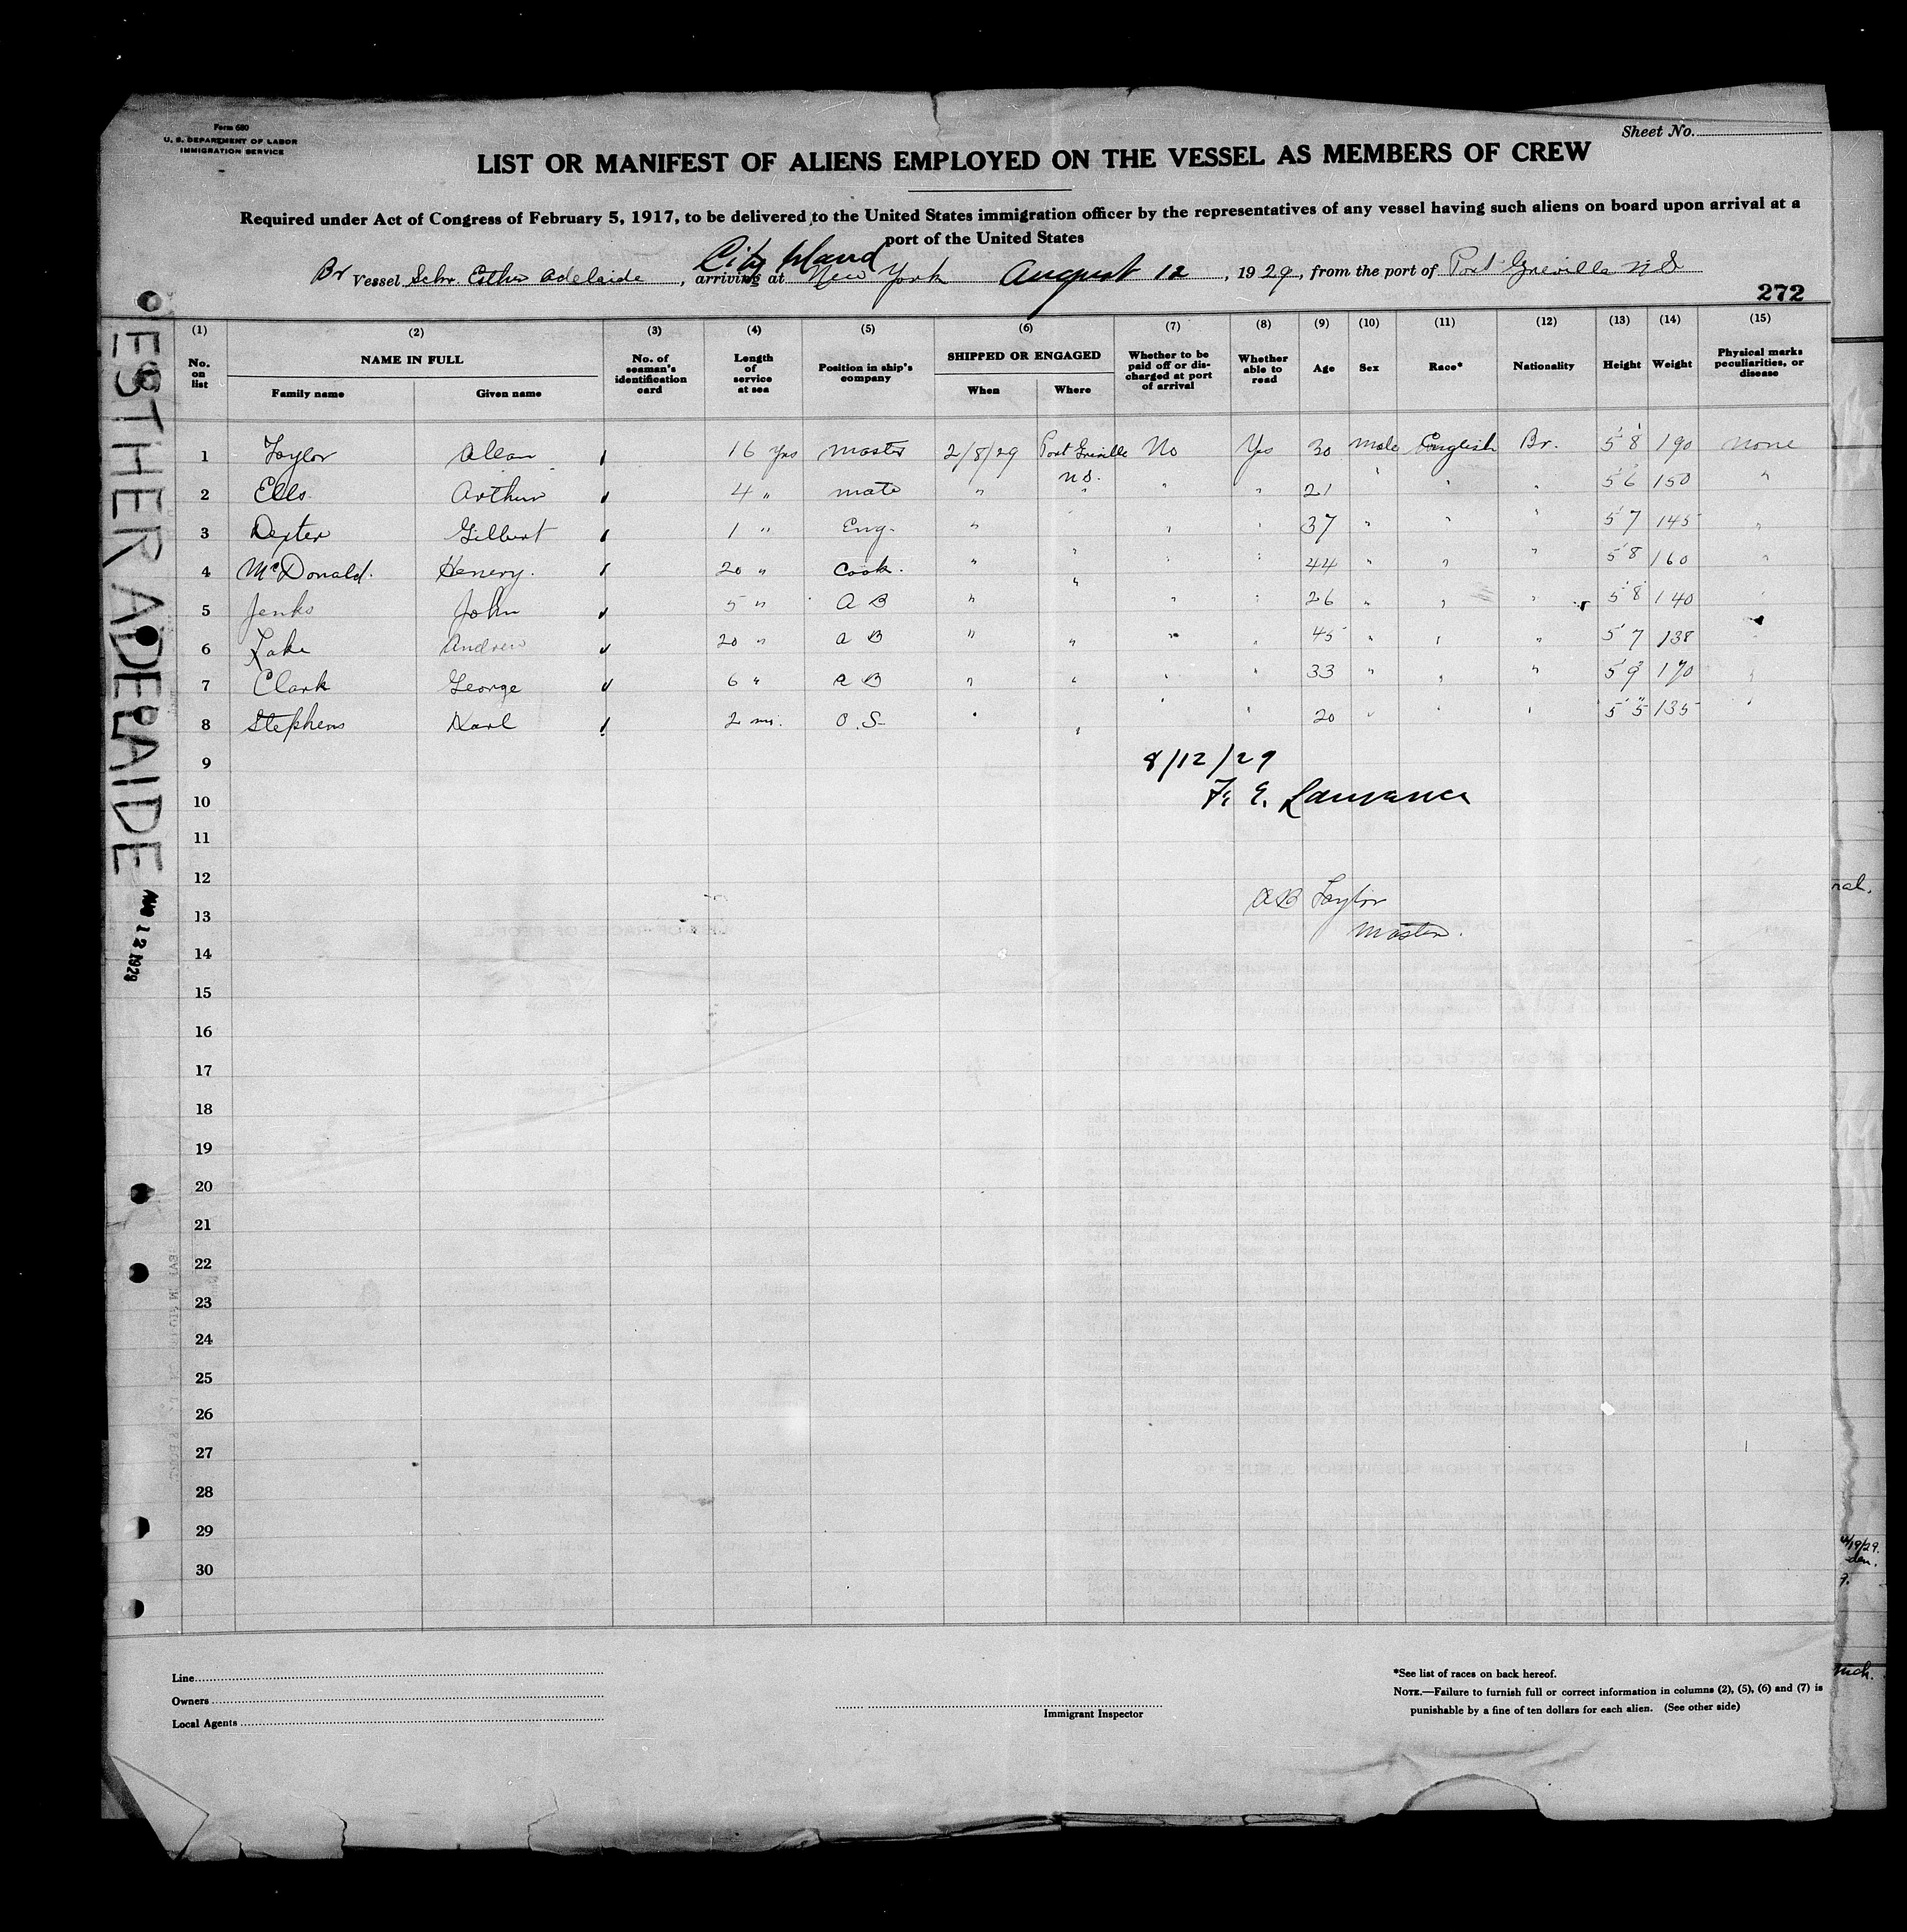 Form 680
U. S. DEPARTMENT OF LABOR
IMMIGRATION SERVICE
Sheet No.
LIST OR MANIFEST OF ALIENS EMPLOYED ON THE VESSEL AS MEMBERS OF CREW
Required under Act of Congress of February 5, 1917, to be delivered to the United States immigration officer by the representatives of any vessel having such aliens on board upon arrival at a
port of the United States
City Island
Br Vessel Schr. Esther Adelaide, arriving at New York August 12, 1929, from the port of Port Greville N S
272
(1) (2) (3) (4) (5) (6) (7) (8) (9) (10) (11) (12) (13) (14) (15)
No. on list NAME IN FULL Family name Given name No. of seaman's identification card Length of service at sea Position in ship's company SHIPPED OR ENGAGED When Where Whether to be paid off or discharged at port of arrival Whether able to read Age Sex Race* Nationality Height Weight Physical marks peculiarities, or disease
1 Taylor Allan 16 Yrs Master 2/8/29 Port Greville N.S. No Yes 30 Male English Br. 5' 8" 190 None
2 Ells Arthur 4 " mate " " " " 21 " " " 5' 6" 150 "
3 Dexter Gilbert 1 " Eng. " " " " 37 " " " 5' 7" 145 "
4 McDonald. Henery. 20 " Cook. " " " " 44 " " " 5' 8" 160 "
5 Jenks John 5 " A B " " " " 26 " " " 5' 8" 140 "
6 Lake Andrew 20 " A B " " " " 45 " " " 5' 7" 138 "
7 Clark George 6 " A B " " " " 33 " " " 5' 9" 170 "
8 Stephens Karl 2 m. O.S. " " " " 20 " " " 5' 5" 135 "
9
8/12/29
10
F. E. Lawrance
11
12
A B Taylor
13
Master.
14
15
16
17
18
19
20
21
22
23
24
25
26
27
28
29
30
ESTHER ADELAIDE
AUG 12 1929
Line
Owners
Local Agents
Immigrant Inspector
*See list of races on back hereof.
NOTE.—Failure to furnish full or correct information in columns (2), (5), (6) and (7) is
punishable by a fine of ten dollars for each alien. (See other side)